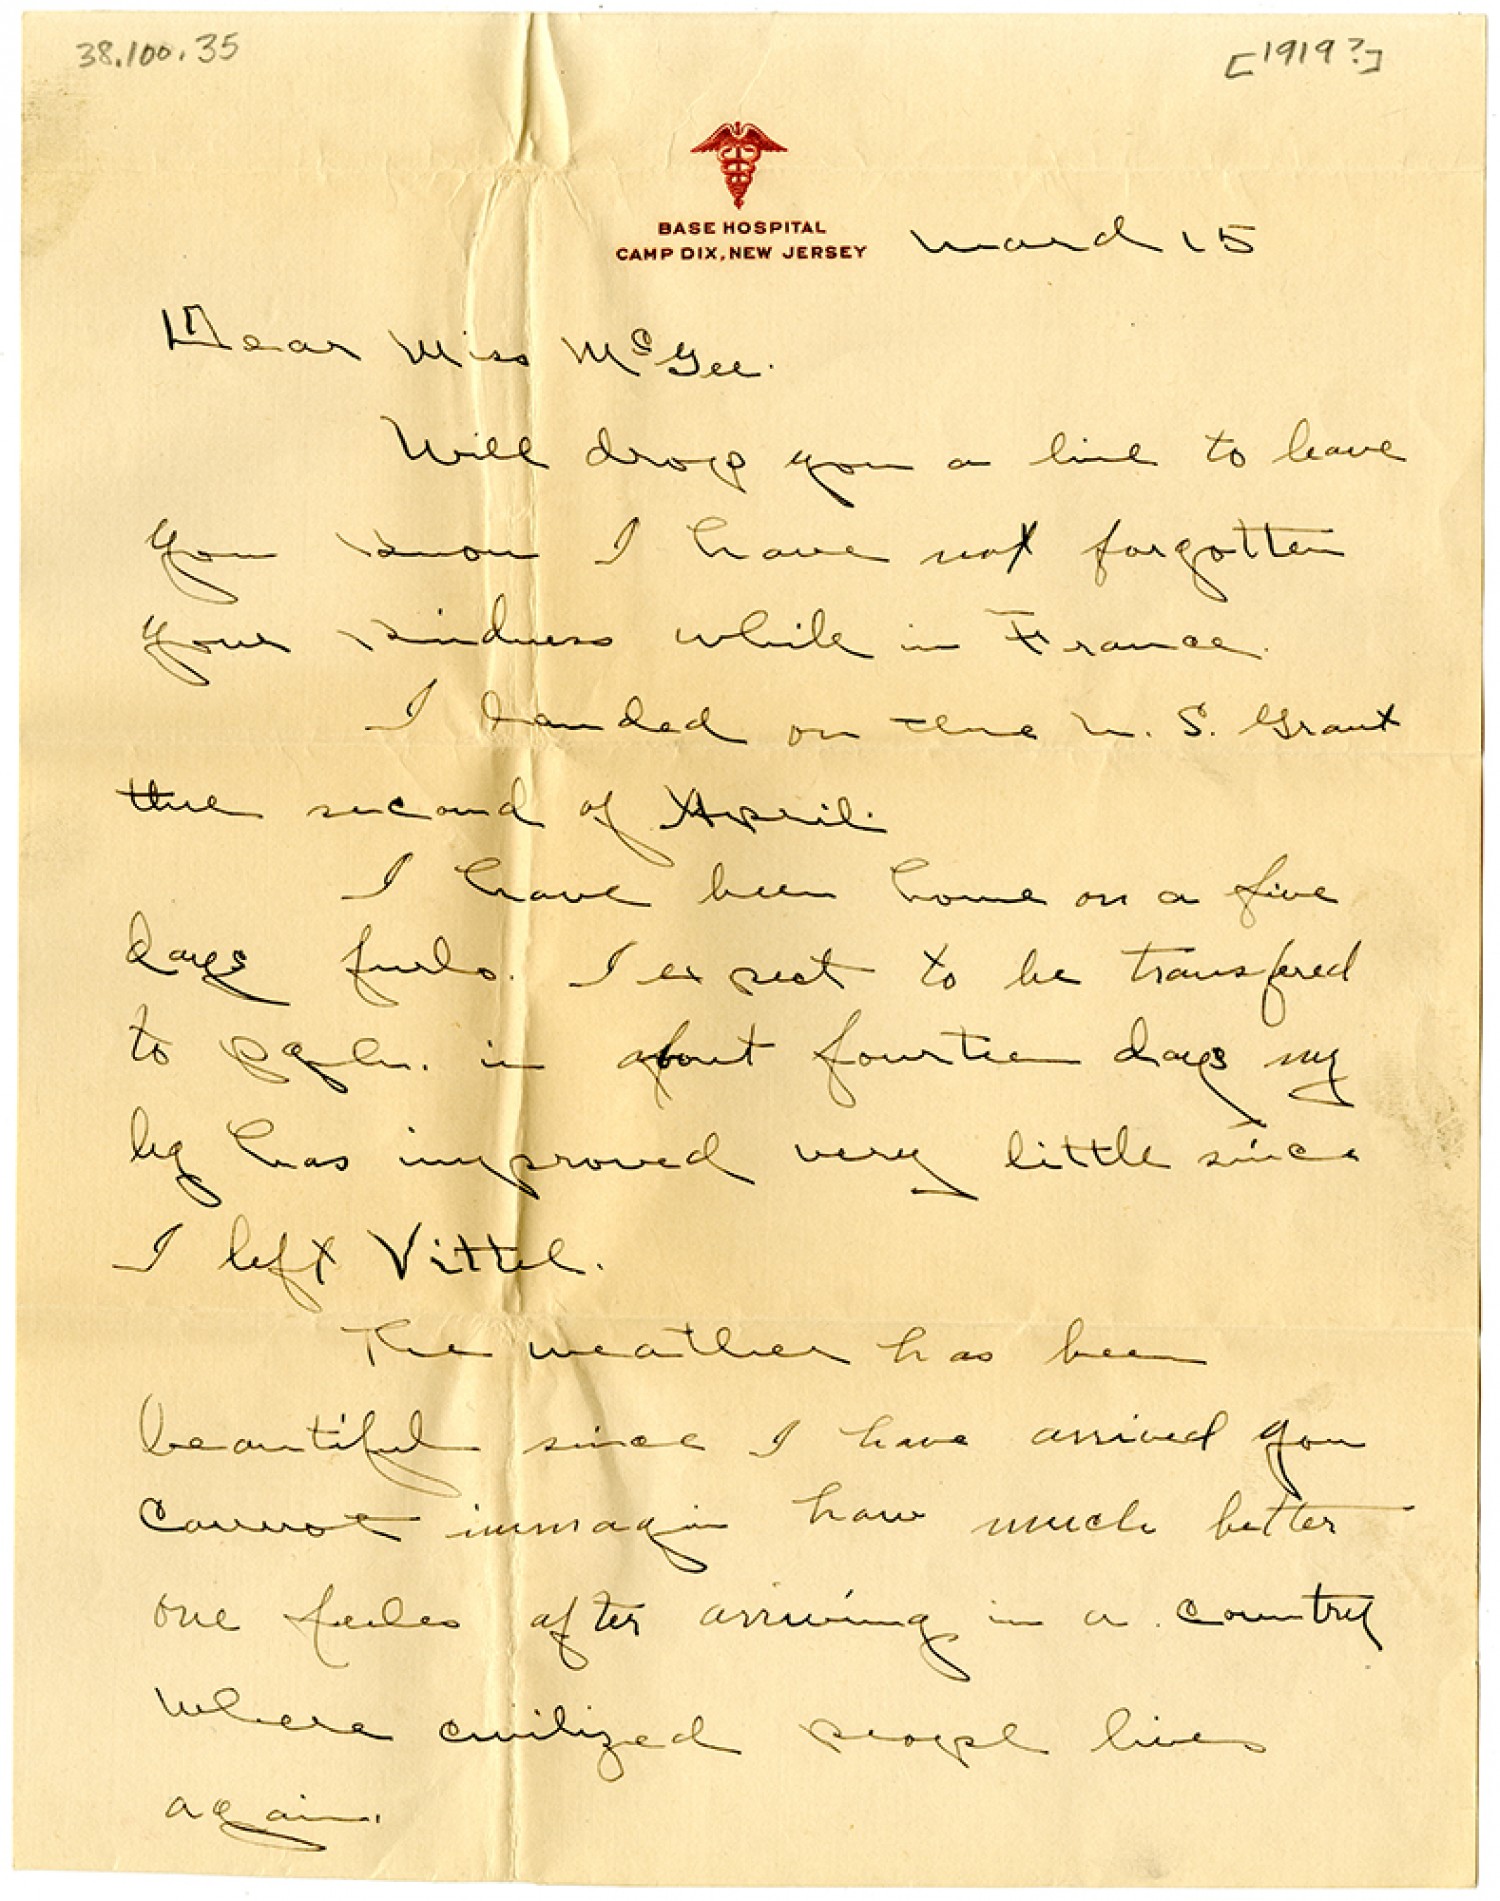 38.100.35
[1919?]
BASE HOSPITAL
CAMP DIX, NEW JERSEY
Ward 15
Dear Miss McGee.
Will drop you a line to leave
you know I have not forgotten
your kindness while in France.
I landed on the U. S. Grant
the second of April.
I have been home on a five
days furlo. I expect to be transfered
to in about fourteen days my
leg has improved very little since
I left Vittel.
The weather has been
beautiful since I have arrived you
cannot immagin how much better
one feeles after arriving in a country
where civilized peopl lives
again.